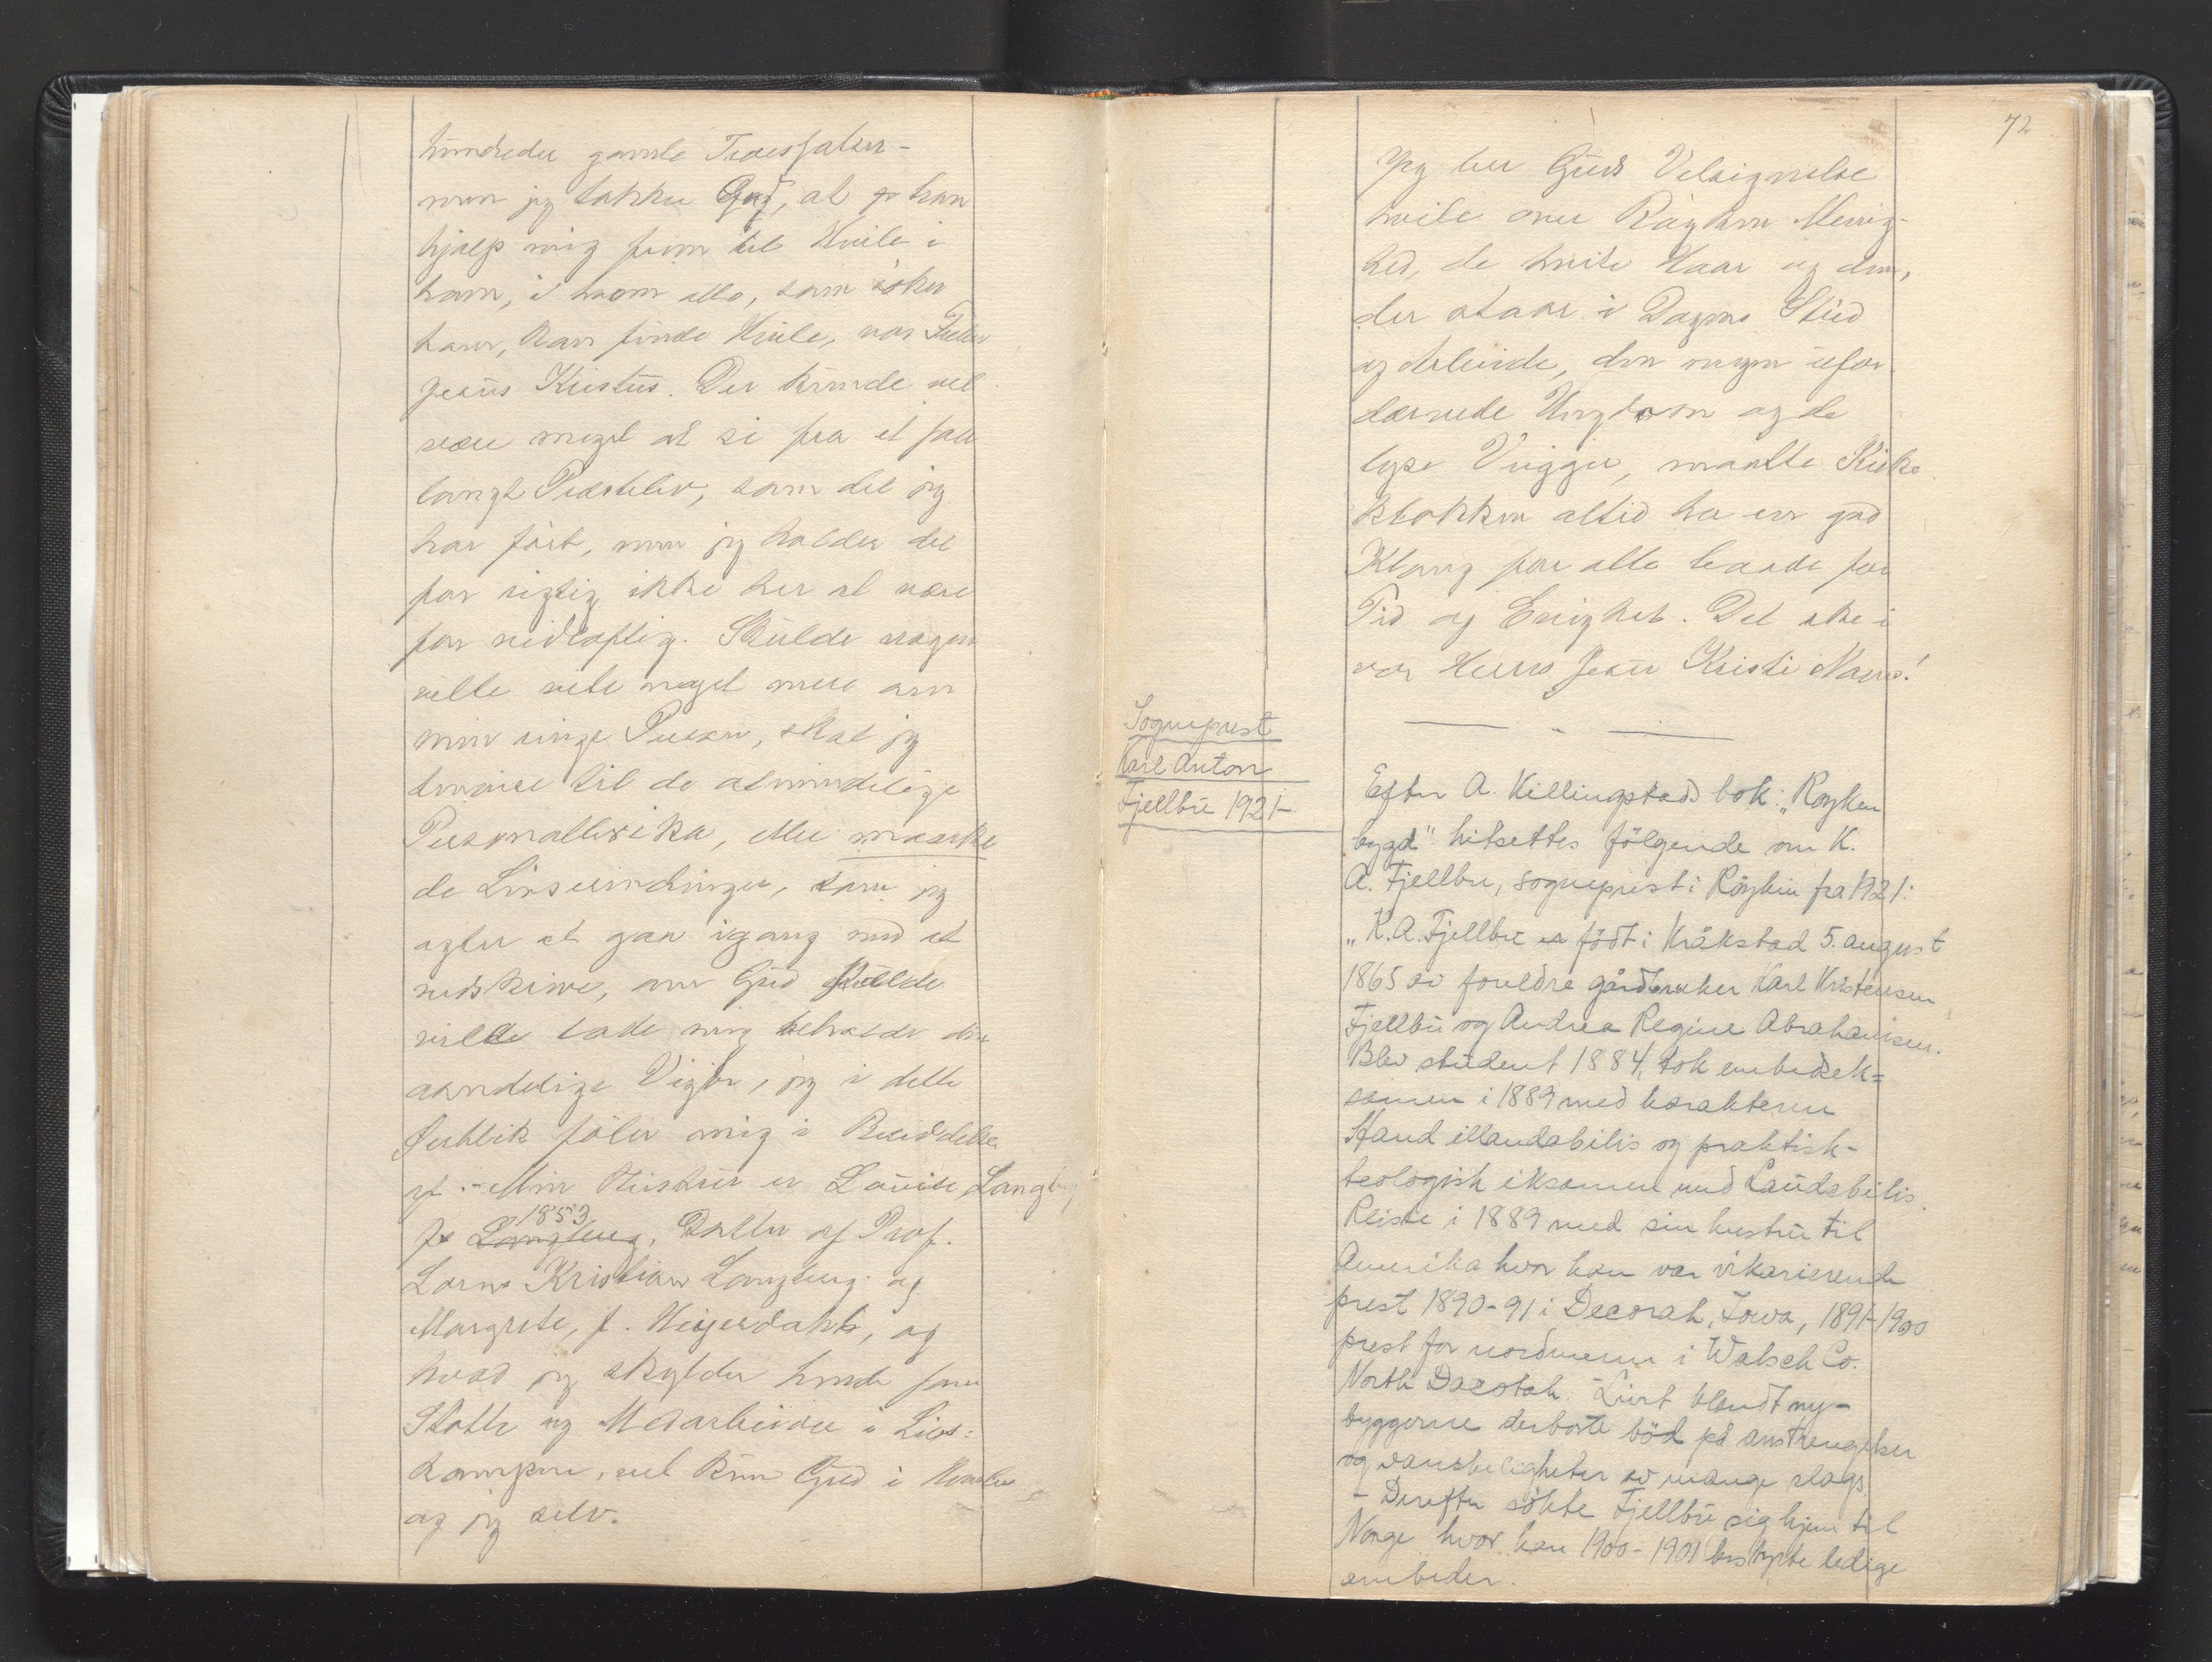 hundreder gamle Troesfakta-
maa jeg takke Gud, at han
hjalp mig frem til Hvile i
ham, i hvem alle, som søker
ham, kan finde Hvile, vor Frelser
Jesus Kristus. Der kunde vel
være meget at si fra et saa
langt Presteliv, som det jeg
har ført, men jeg holder det
for rigtig ikke her at være
for vidløftig. Skulde nogen
ville vite noget mere om
min ringe Person, skal jeg
henvise til de almindelige
Personalleksika, eller maaske
de Livserindringer, som jeg
agter at gaa igang med at
nedskrive, om Gud skulde
ville lade mig beholde den
aandelige Vigør, jeg i dette
Øieblik føler mig i Besiddelse
af. - Min Hustru er Louise Langberg
f. 1853, Datter af Prof.
Lorns Kristian Langberg og
Margrete, f. Heyerdahl, og
hvad jeg skylder hende som
Støtte og Medarbeider i Livs-
kampen, vet kun Gud i Himlen
og jeg selv.
72
Jeg ber Guds Velsignelse
hvile over Røyken Menig-
hed, de hvite Haar og dem,
der staar i Dagens Strid
og Arbeide, den unge ufor-
dærvede Ungdom og de
lyse Vugger, maatte Kirke
klokken altid ha en god
Klang for alle baade for
Tid og Evighet. Det ske i
vor Herres Jesu Kristi Navn!
Sogneprest
Karl Anton
Fjellbu 1921-
Efter A. Killingstads bok: "Røyken
bygd" hitsettes følgende om K.
A. Fjellbu, sogneprest i Röyken fra 1921:
"K. A. Fjellbu er födt i Kråkstad 5. august
1865 av foreldre gårdbruker Karl Kristensen
Fjellbu og Andrea Regine Abrahamsen.
Blev student 1884, tok embedsek=
samen i 1889 med karakteren
Haud illaudabilis og praktisk-
teologisk eksamen med Laudabilis.
Reiste i 1889 med sin hustru til
Amerika hvor han var vikarierende
prest 1890-91 i Decorah, Iowa, 1891-1900
prest for nordmenn i Walsch Co.
North Dacotah. Livet blandt ny-
byggerne derborte böd på anstrengelser
og vanskeligheter av mange slags
- Derefter sökte Fjellbu sig hjem til
Norge hvor han 1900-1901 bestyrte ledige
embeder.